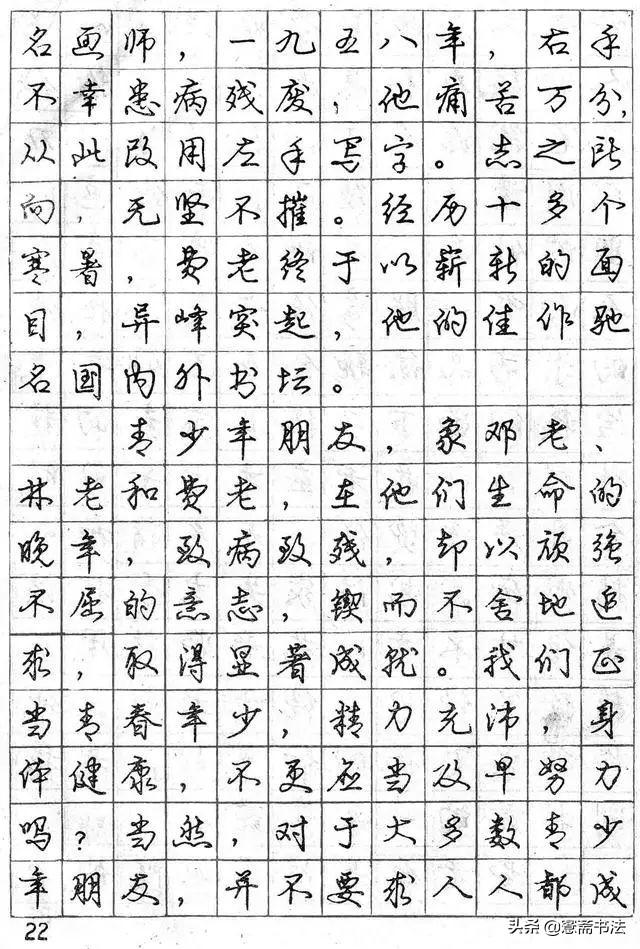 名画师，一九五八年，右手
不幸患病残废，他痛苦万分，
从此改用左手写字。志之所
向，无坚不摧。经历十多个
寒暑，费老终于以崭新的面
目，异峰突起，他的佳作驰
名国内外书坛。
青少年朋友，象邓老、
林老和费老，在他们生命的
晚年，致病致残，却以顽强
不屈的意志，锲而不舍地追
求，取得显著成就。我们正
当青春年少，精力充沛，身
体健康，不更应当及早努力
吗？当然，对于大多数青少
年朋友，并不要求人人都成
22
头条@寋斋书法